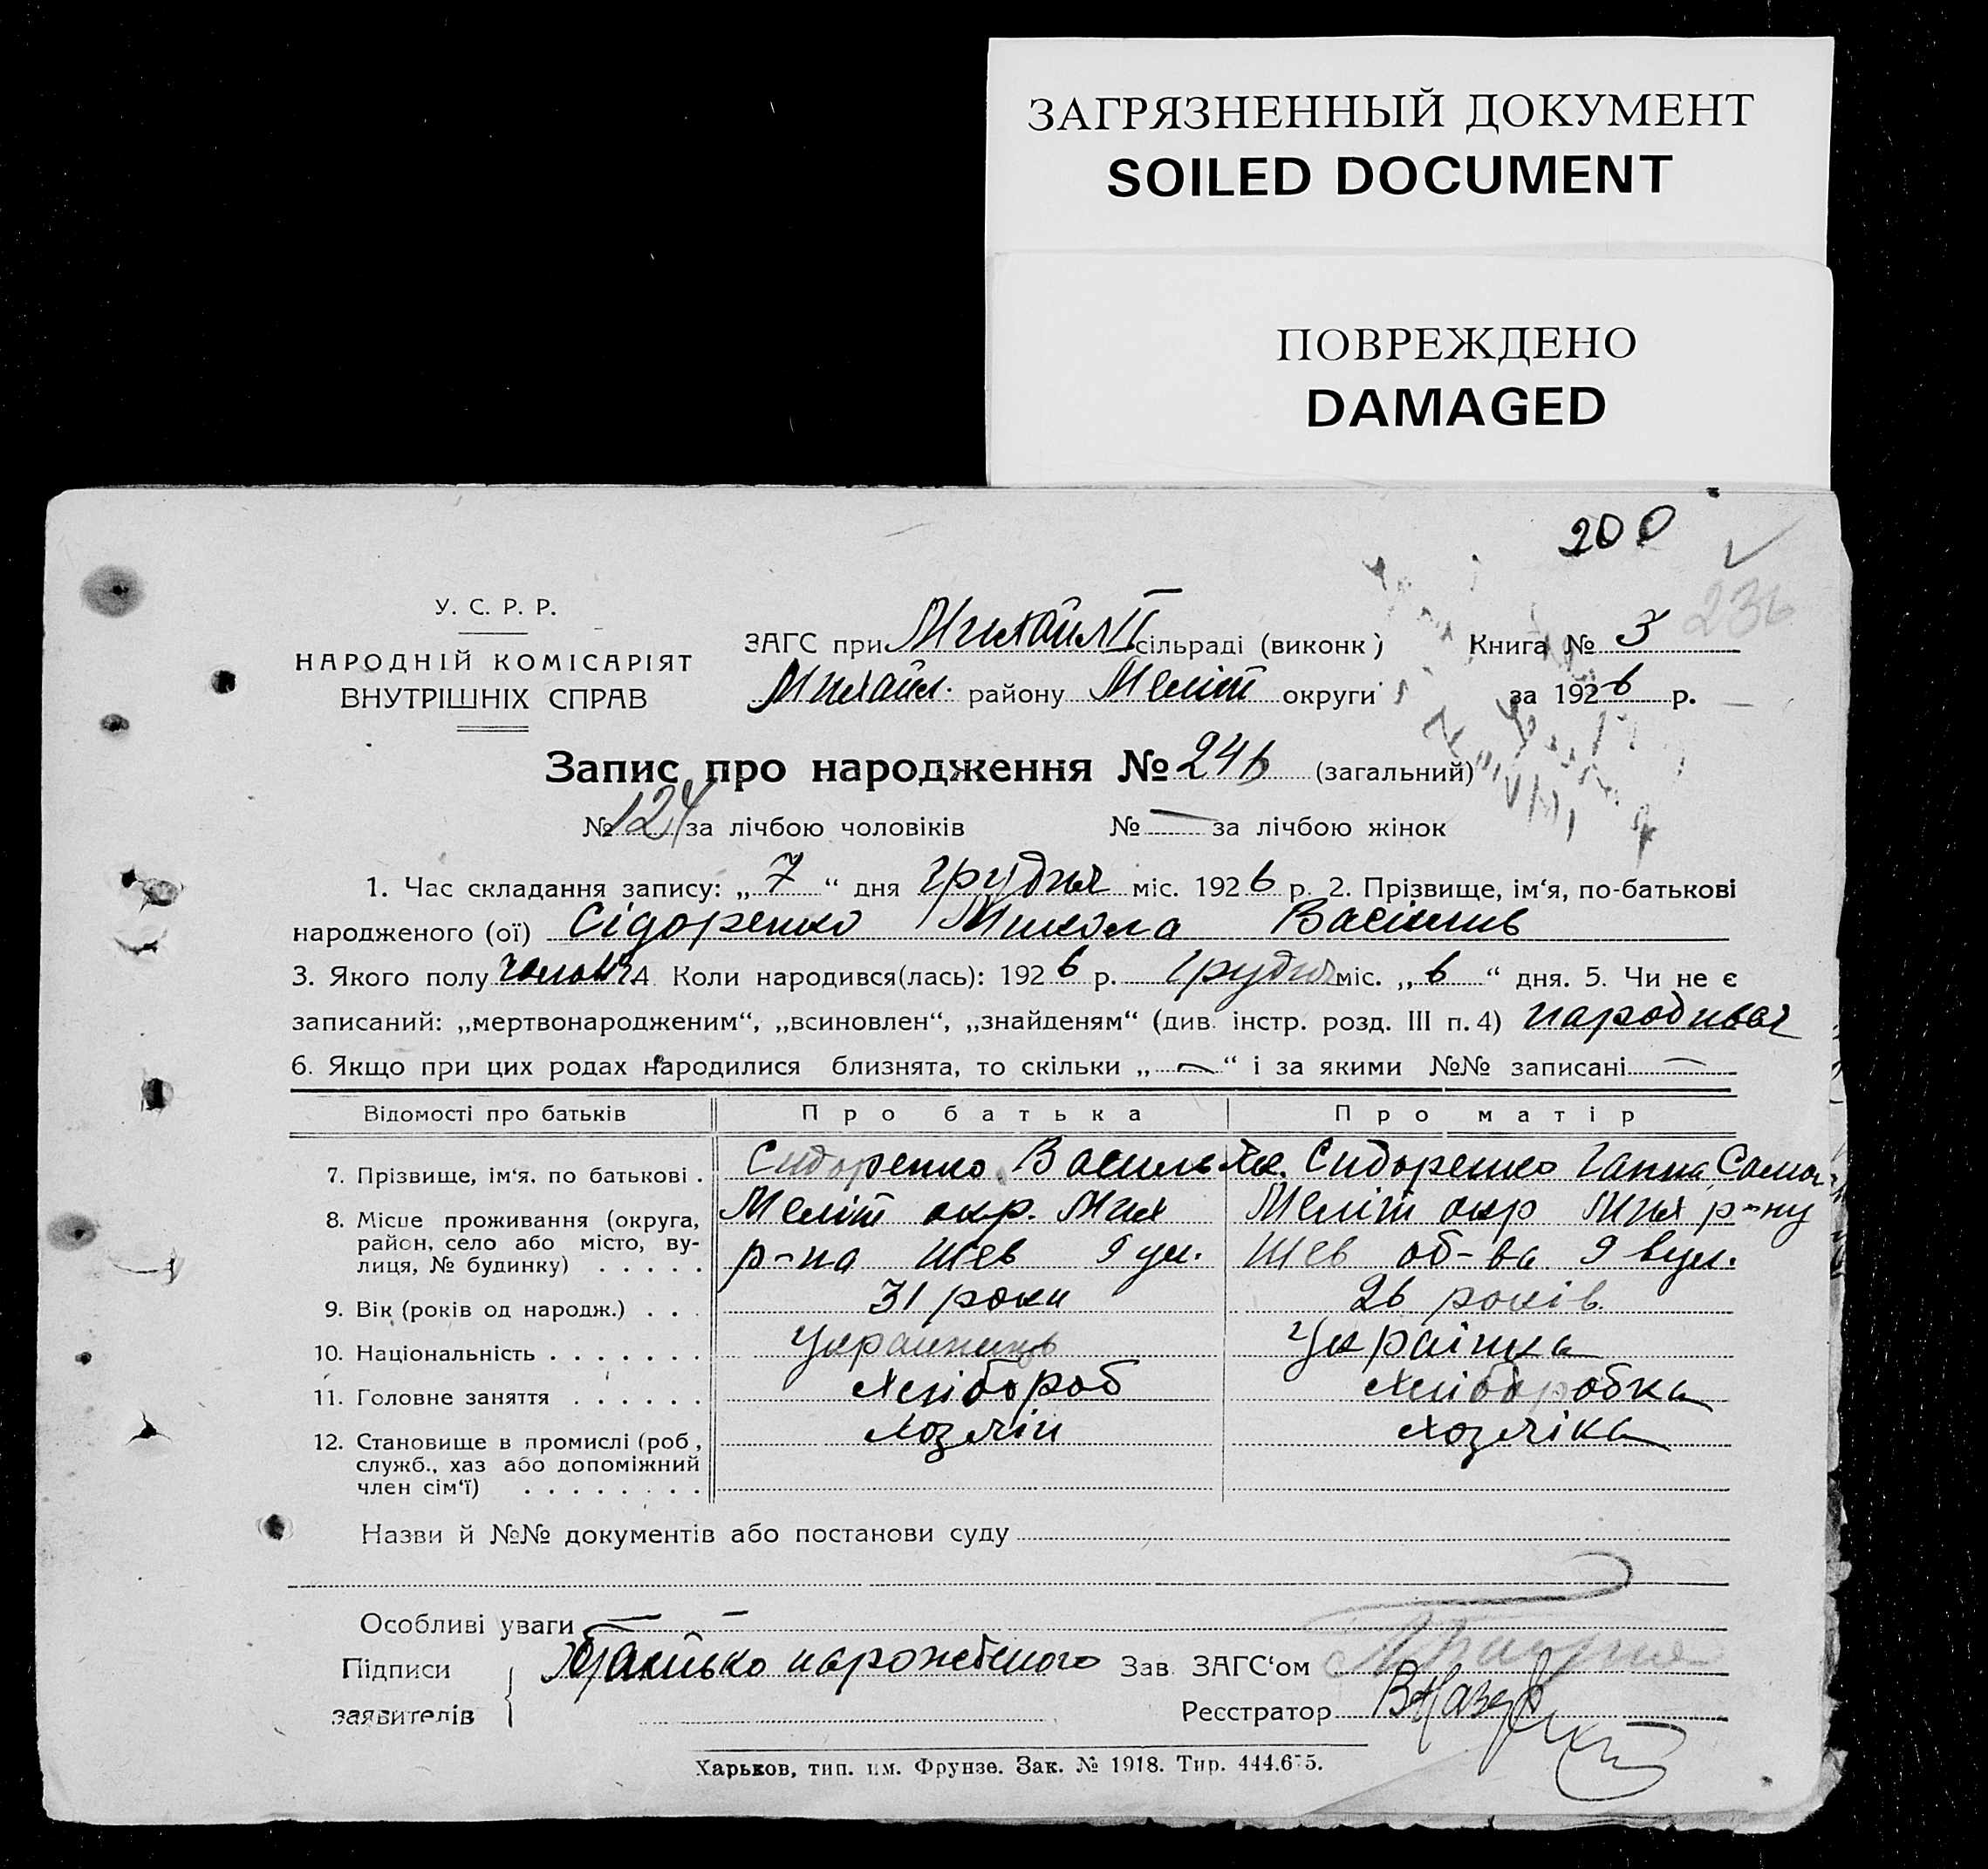 ЗАГРЯЗНЕННЫЙ ДОКУМЕНТ
SOILED DOCUMENT
ПОВРЕЖДЕНО
DAMAGED
200
236
У. С. Р. Р.
НАРОДНІЙ КОМІСАРІЯТ
ВНУТРІШНІХ СПРАВ
ЗАГС при Михайл II сільраді (виконк) Книга № 3
Михайл. району Меліт округи за 1926 р.
Запис про народження № 246 (загальний)
№ 124 за лічбою чоловіків № — за лічбою жінок
1. Час складання запису: „ 7 “ дня грудня міс. 1926 р. 2. Прізвище, ім‘я, по-батькові
народженого (ої) Сідоренко Микола Васильів
3. Якого полу чоловіч 4 Коли народився(лась): 1926 р. грудня міс. „ 6 “ дня. 5. Чи не є
записаний: „мертвонародженим“, „всиновлен“, „знайденям“ (див. інстр. розд. III п. 4)
6. Якщо при цих родах народилися близнята, то скільки „ — “ і за якими №№ записані —
Відомості про батьків Про батька Про матір
7. Прізвище, ім‘я. по батькові . Сидоренко Василь Як. Сидоренко Ганна Самой
8. Місце проживання (округа, Меліт окр. Мих Меліт окр Мих р-ну
район, село або місто, ву-
лиця, № будинку) . . . . . р-на Шев 9 ул. Шев об-ва 9 вул.
9. Вік (років од народж.) . . . 31 роки 26 років
10. Національність . . . . . . . Українець Українка
11. Головне заняття . . . . . . Хлібороб Хліборобка
12. Становище в промислі (роб., Хозяін Хозяіка
служб., хаз або допоміжний
член сім‘ї) . . . . . . . .
Назви й №№ документів або постанови суду
Особливі уваги — —
Підписи Батько нарожденого Зав. ЗАГС‘ом
заявителів Реєстратор
Харьков, тип. им. Фрунзе. Зак. № 1918. Тир. 444.675.